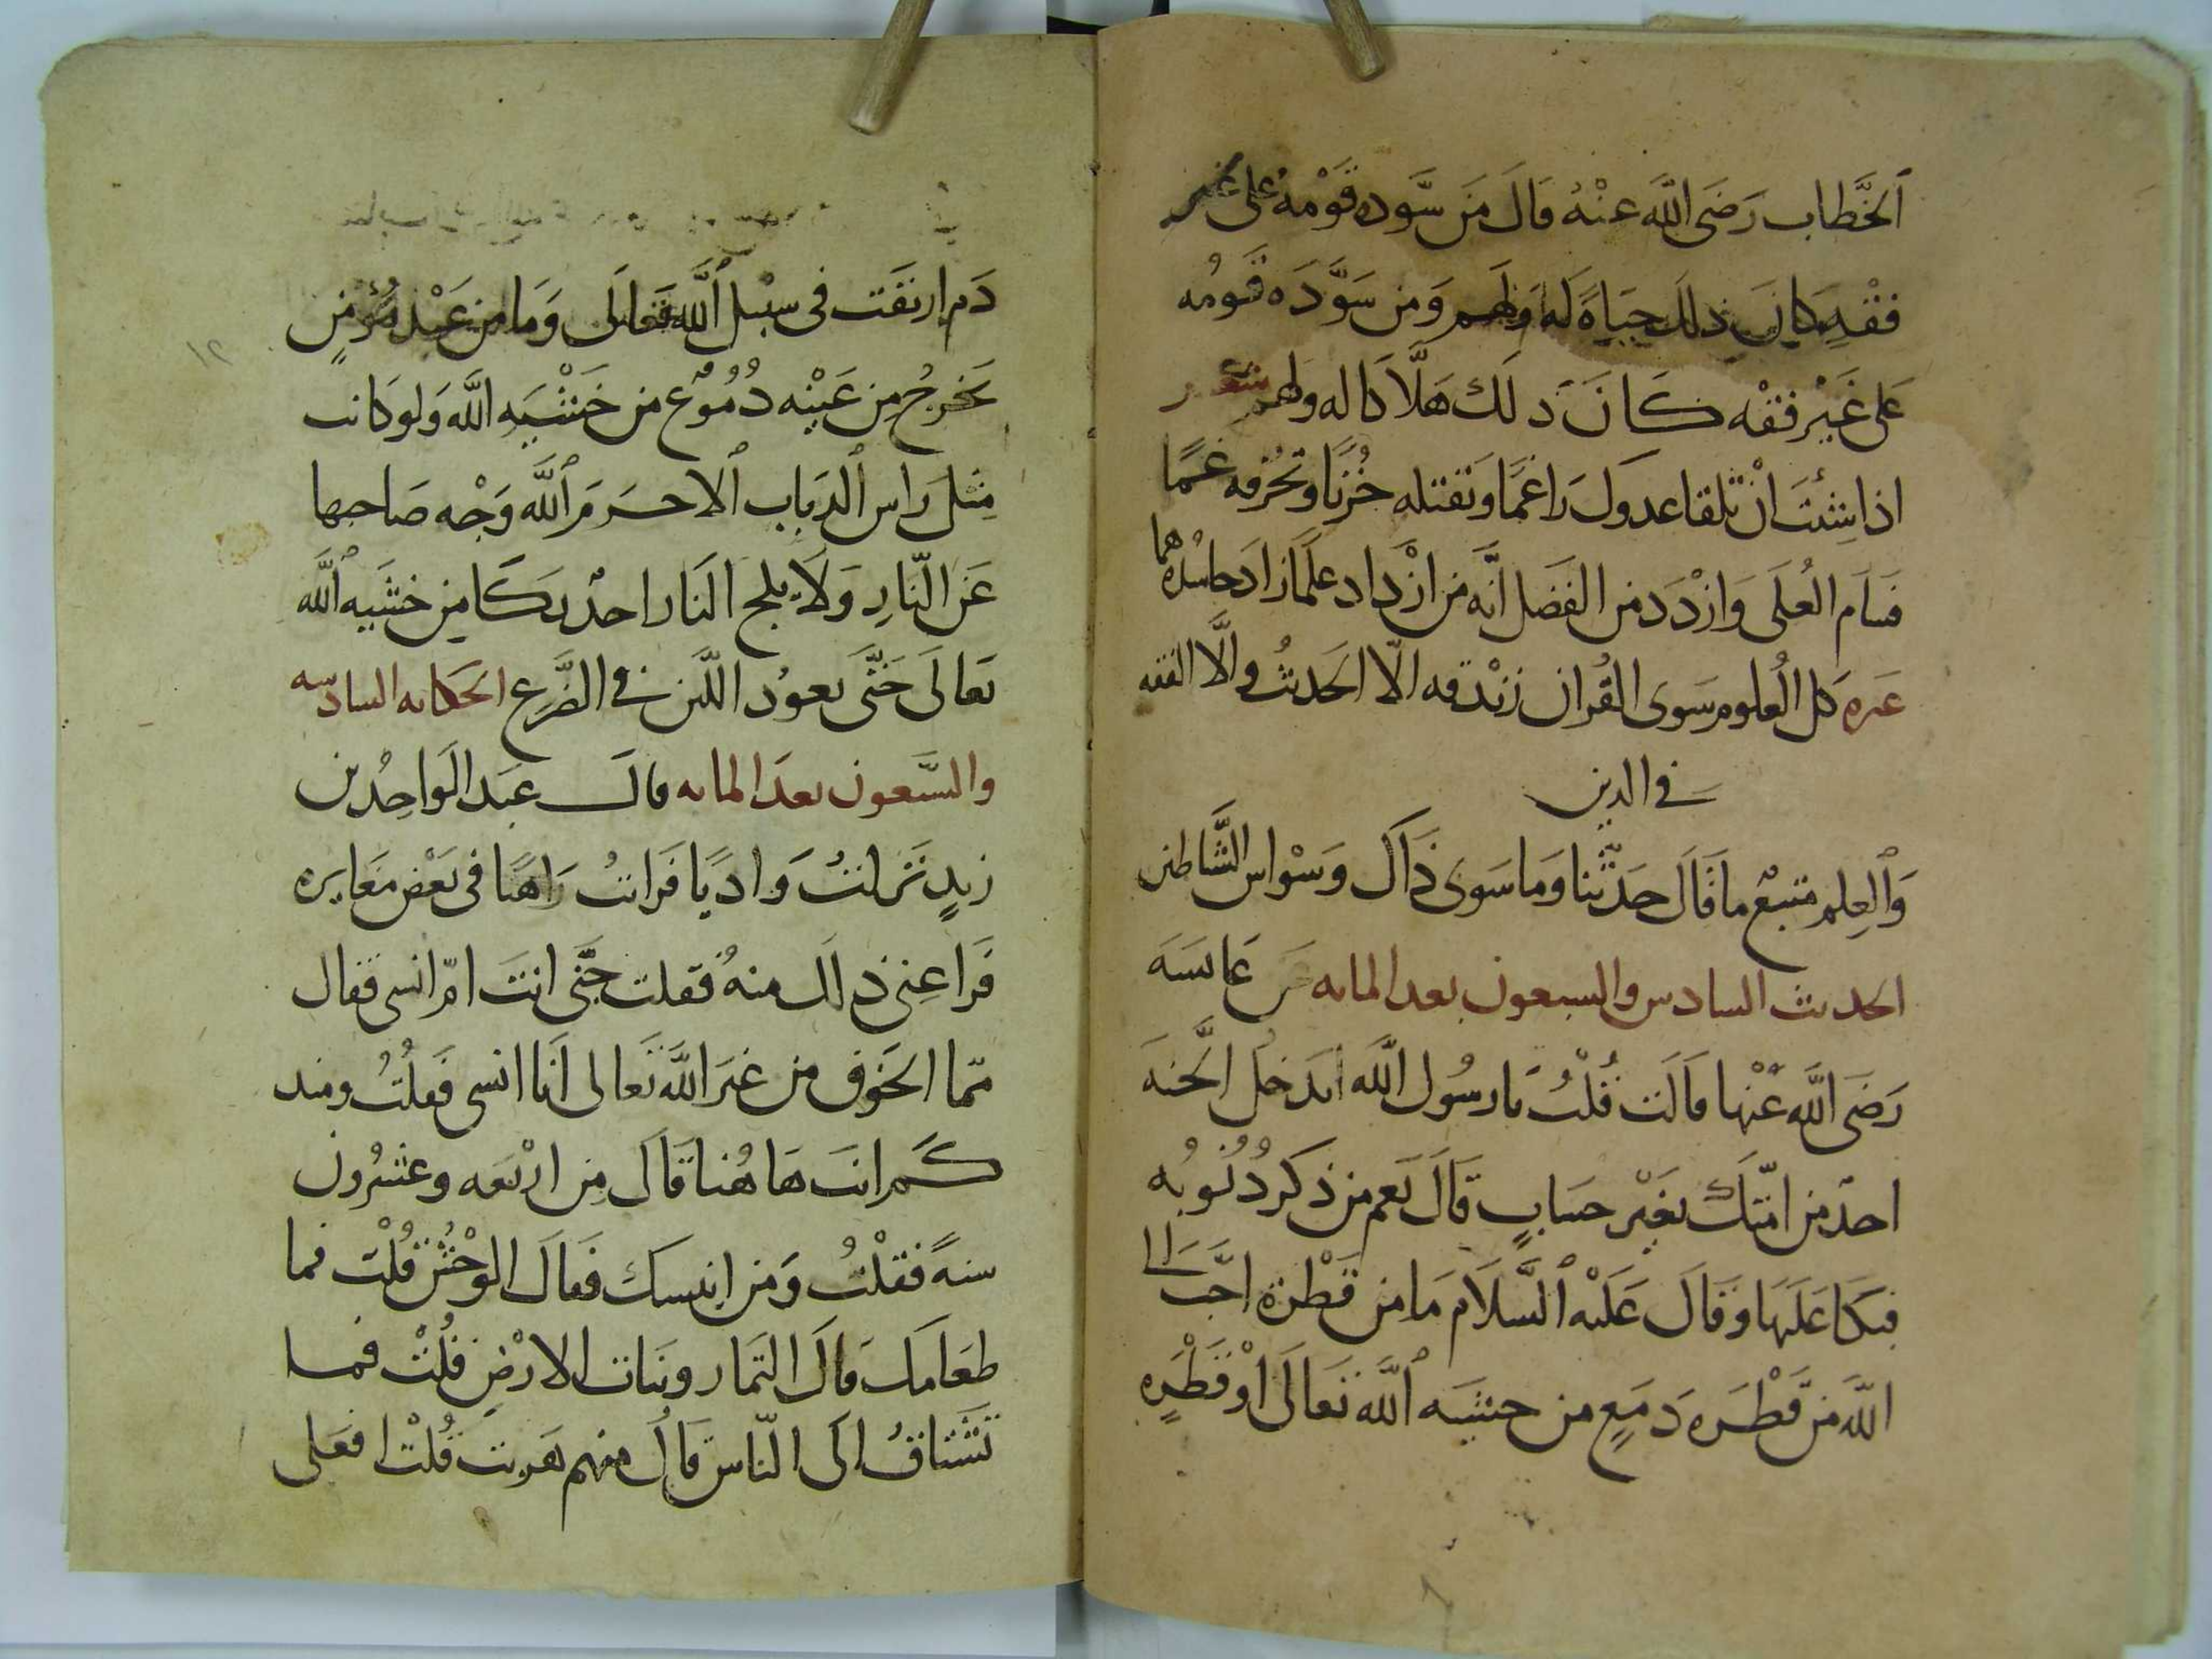 الخطاب رَضَى الله عنْهُ قالَ مَن سَّوده قَوْمهُ على غير
فقْهٍ كانَ ذلك حيَاةً له ولهم وَمن سَوَّدَه قومُه
على غَيْر فقْه كَانَ دلك هَلَّاكا له ولهم شعر
اذا شِئتَ انْ تلقا عدوك راغمًا وتقتله حُزنًا وتحُرقه غمًا
فسَام العُلَى وَازْدَد من الفَضل انّه من ازْداد علمًا زادَ حاسُده هما
غيره كل العُلوم سَوى القُران زنْدقه الّا الحَديثُ والَّا الفقه
في الدين
وَالعِلم متبعٌ ما قَالَ حدّثنا وَما سَوى ذاك وَسْواس الشَّياطين
الحديث السادس والسبعون بعد المايه عَن عايشَه
رَضَى الله عنْها قالَت قُلْتُ يا رسُول الله ايدخل الجَنه
احدٌ من امّتك بغَيْر حسَابٍ قَالَ نَعم من ذكر ذُنُوبُه
فبكا عَليهَا وقَالَ عَليْه السَّلَام مَا من قَطْرة احَّبَ الى
الله مّن قَطْرَه دَمعٍ من خشيَه الله تَعَالَى اوْ قَطْرَهٍ
دَم ارتقَت فى سبْيل الله تعَالَى وَمَا من عَبْد مُؤْمنٍ
يخرجُ مِن عَيْنِه دُمُوْعٌ من خَشْيَهِ الله وَلو كَانت
مِثل رَاس الدبَاب الا حَرمَ الله وَجْه صَاحبها
عَن النّارِ وَلَا يلج النَار احدٌ بكَا مِن خشَيه الله
تعَالَى حَتَّى يعوُد اللّبَن في الضَّرع الحكايه السادسه
والسَّبعون بعدَ المايه قالَ عبَد الوَاحِدُ بن
زيدٍ نَزلتُ وَاديًا فَراتُ رَاهبًا فى بَعْض مغَايره
فَراعِنى ذلك منهُ فقلت جَّنى انتَ امّ انسى فقال
ممّا الخَوْف من غيَر الله تَعالى اَنا انسى فَقلتُ ومند
كَم انتَ هَاهُنا قَالَ مِن ارْبَعه وعشرُون
سنهً فقلْتُ وَمن انيسك فقالَ الوُحْش قُلْت فما
طعَامَك قالَ الثمار ونبَات الارْضِ قُلْت فما
تَشتاقُ الَى النّاس قَالُ منهم هَربت قُلْت افعَلى